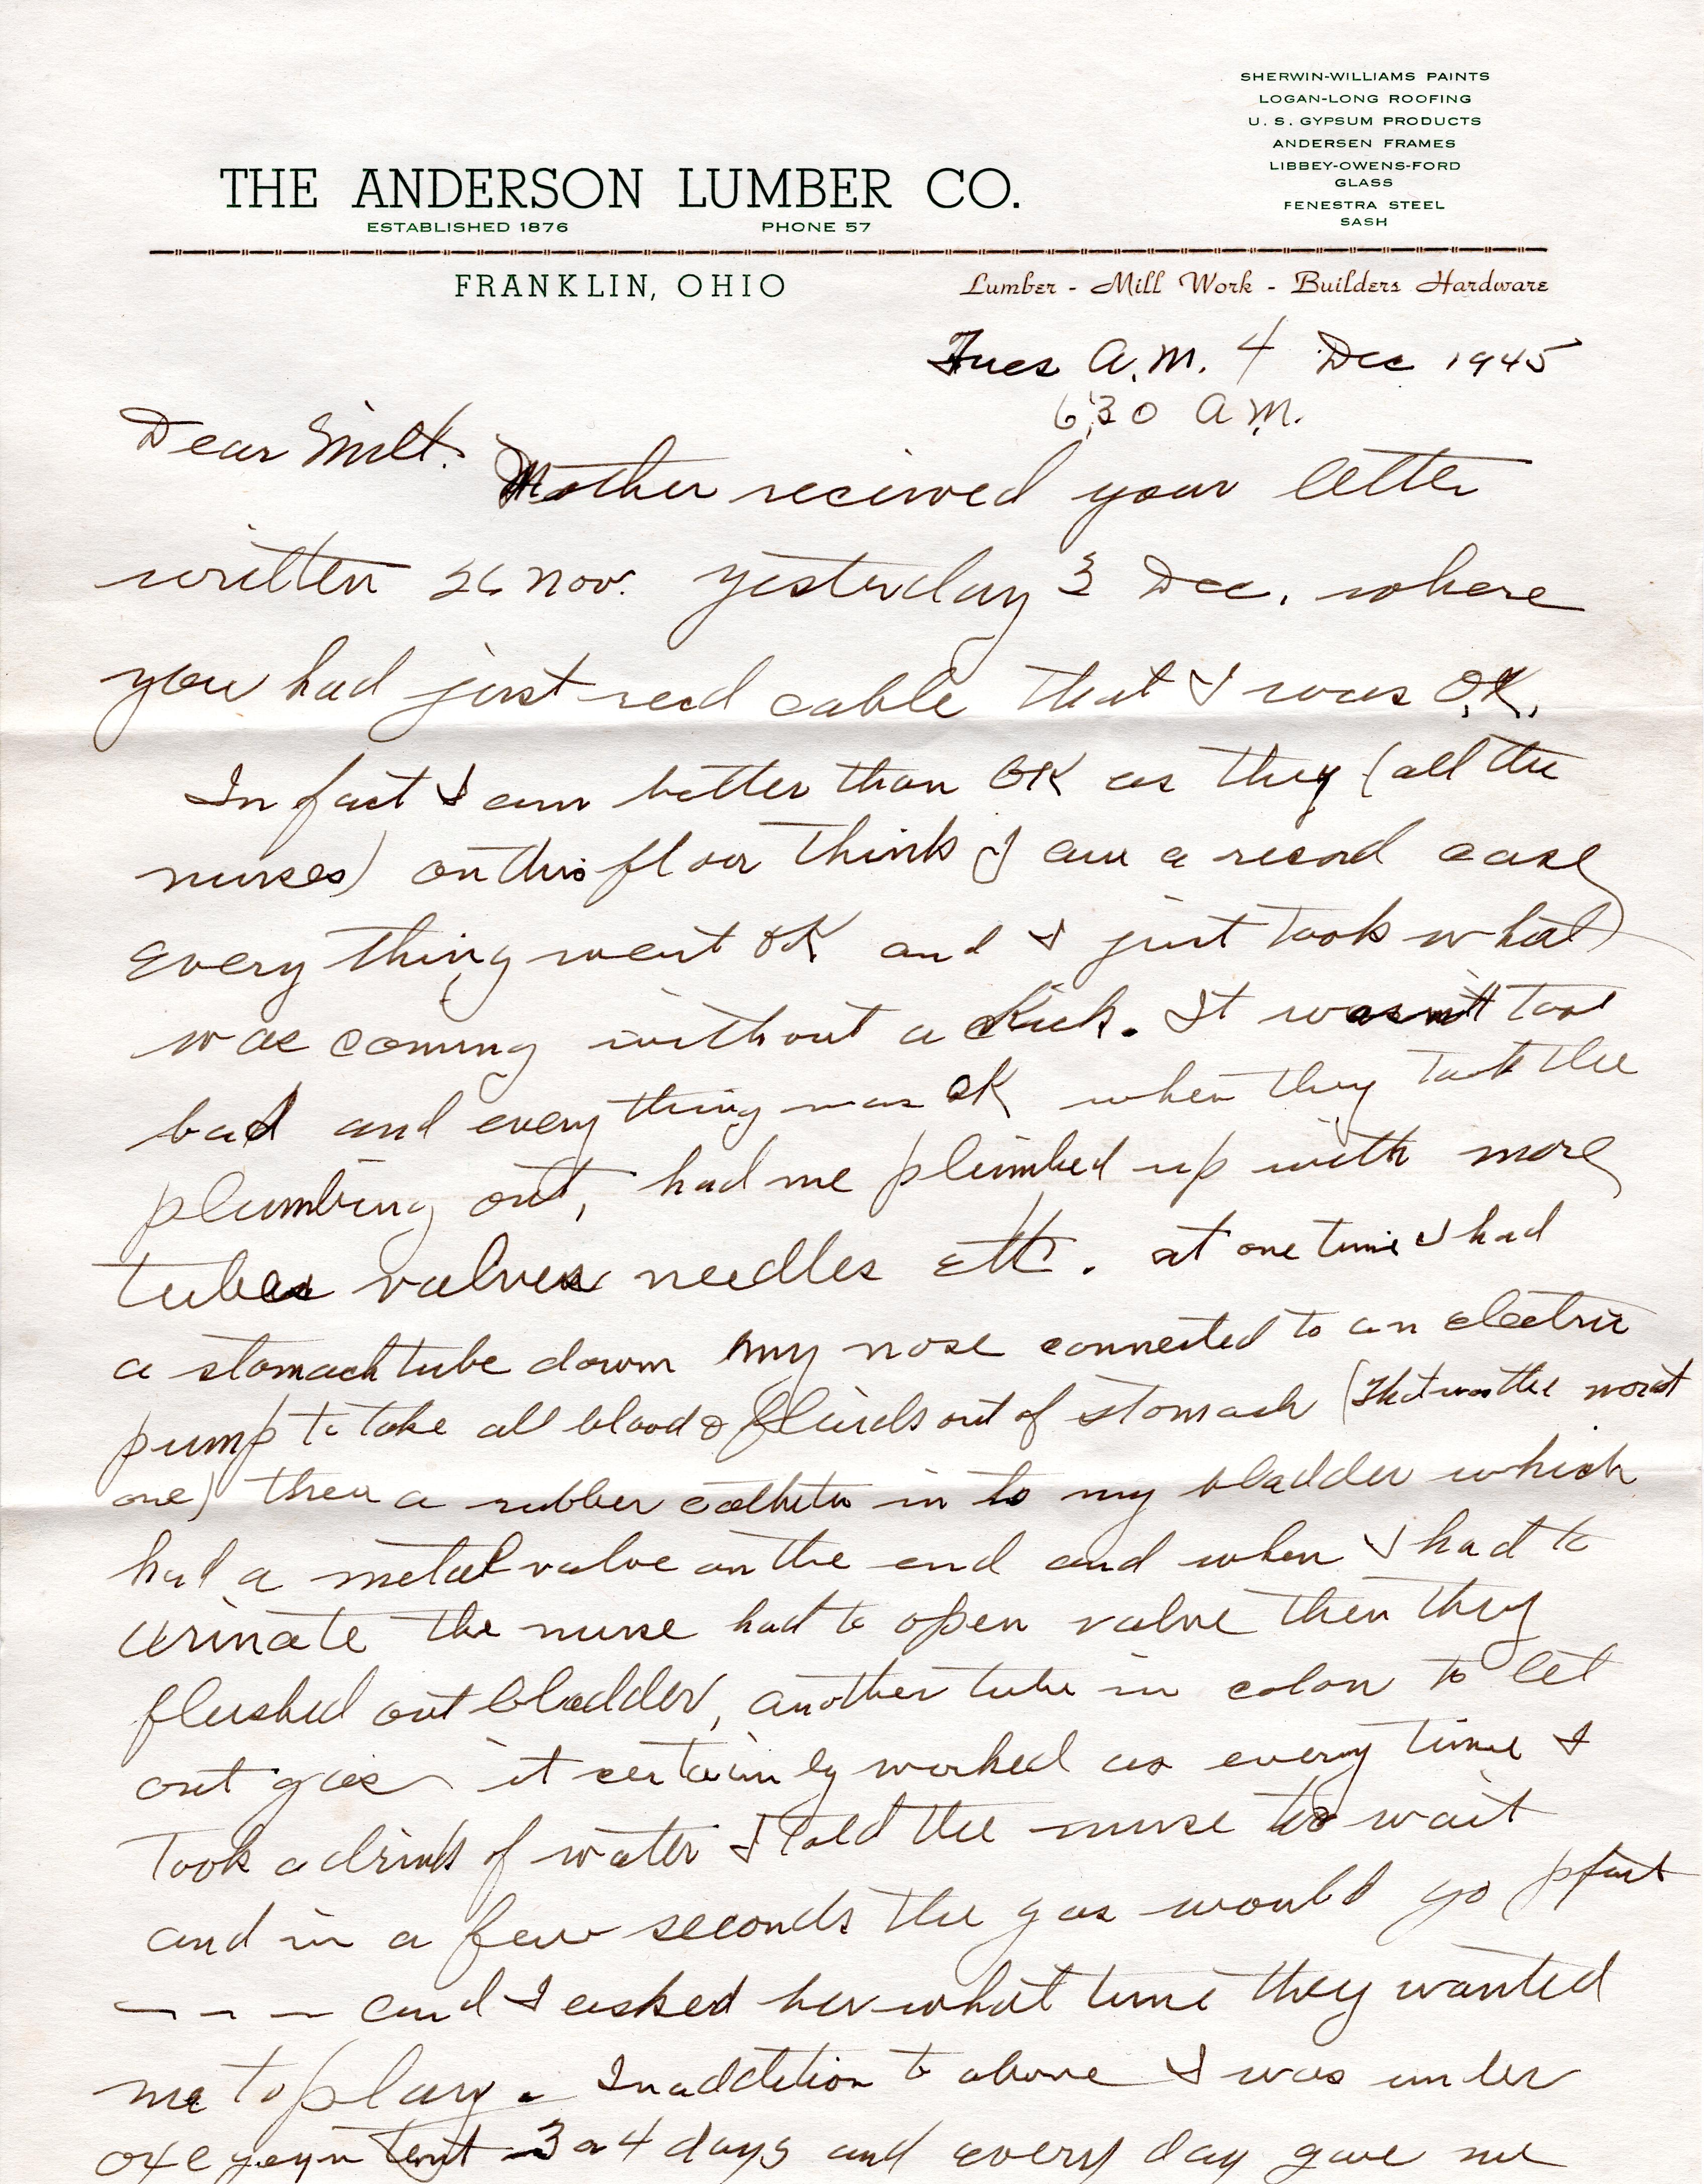 SHERWIN-WILLIAMS PAINTS
LOGAN-LONG ROOFING
U. S. GYPSUM PRODUCTS
ANDERSEN FRAMES
LIBBEY-OWENS-FORD
GLASS
FENESTRA STEEL
SASH
THE ANDERSON LUMBER CO.
ESTABLISHED 1876 PHONE 57
FRANKLIN, OHIO Lumber - Mill Work - Builders Hardware
Tues A.M. 4 Dec 1945
6:30 A.M.
Dear Milt.
Mother received your letter
written 26 Nov. yesterday 3 Dec. where
you had just recd cable that I was O.K.
In fact I am better than OK as they (all the
nurses) on this floor think I am a record case
every thing went OK and I just took what
was coming without a kick. It wasn't too
bad and every thing was OK when they took the
plumbing out, had me plumbed up with more
tubes valves needles etc. at one time I had
a stomach tube down my nose connected to an electric
pump to take all blood & fluids out of stomach (that was the worst
one) then a rubber in to my bladder which
had a metal valve on the end and when I had to
urinate the nurse had to open valve then they
flushed out bladder, another tube in colon to let
out gas it certainly worked as every time I
took a drink of water I told the nurse to wait
and in a few seconds the gas would go pfart
- - - and I asked her what tune they wanted
me to play. In addition to above I was under
oxeygeyn tent 3 a 4 days and every day gave me